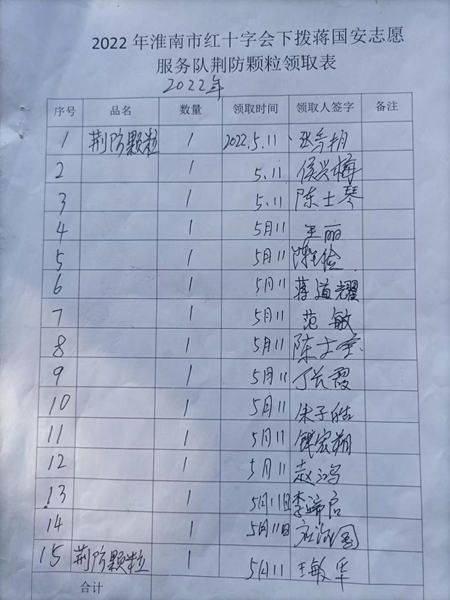 2022年淮南市红十字会下拨蒋国安志愿
服务队荆防颗粒领取表
2022年
序号 品名 数量 领取时间 领取人签字 备注
1 荆防颗粒 1 2022.5.11
2 1 5.11 侯兴梅
3 1 5.11 陈士琴
4 1 5月11 王丽
5 1 5月11
6 1 5月11 蒋道耀
7 1 5月11 范敏
8 1 5月11 陈士
9 1 5月11 丁长霞
10 1 5月11 朱子皓
11 1 5月11 宏翔
12 1 5月11 赵鸿
13 1 5月11日 李
14 1 5月11日
15 荆防颗粒 1 5月11 王敏华
合计